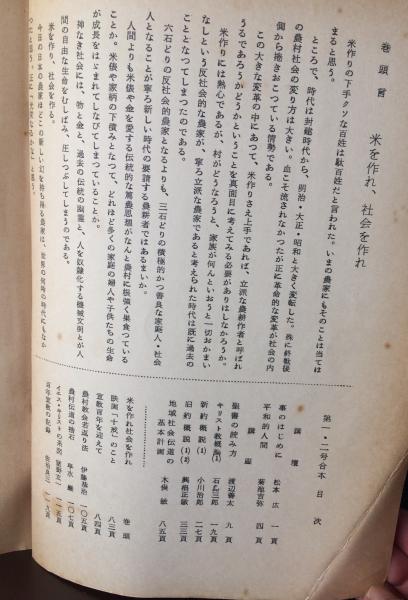 巻頭言　米を作れ、社会を作れ
米作りの下手クソな百姓は駄百姓だと言われた。いまの農家にもそのことは当ては
まると思う。
ところで、時代は封建時代から、明治・大正・昭和と大きく変転した。殊に終戦後
の農村社会の変り方は大きい。血こそ流されなかつたが正に革命的な変革が社会の内
側から捲きおこつている情勢である。
この大きな変革の中にあつて、米作りさえ上手であれば、立派な農耕作者と呼ばれ
うるであろうかどうかということを真面目に考えてみる必要がありはしなかろうか。
米作りには熱心であるが、村がどうなろうと、家族が何んといおうと一切おかまい
なしという反社会的な農家が、寧ろ立派な農家であると考えられた時代は既に過去の
こととなつてしまつたのである。
六石どりの反社会的農家となるよりも、三石どりの積極的かつ善良な家庭人・社会
人となることが寧ろ新しい時代の要請する農耕者ではあるまいか。
人間よりも米俵や金を愛する伝統的な篤農思想がなんと農村に根強く巣食つている
ことか。米俵や家柄の下積みとなつて、どれほど多くの家庭の婦人や子供たちの生命
が成長をはばまれてしなびてしまつていることか。
神なき社会には、物と金と、過去の伝統の幽霊と、人を奴隷化する機械文明とが人
間の自由な生命をむしばみ、圧しつぶしてしまうのである。
米を作り、社会を作る。
今日の日本の農家ほどこの新しい幻を持ち得る農家は、世界の何時の時代にもなか
つたと思う。正に、光栄なるかなと思う。
第一・二号合本　目次
講壇
事のはじめに　松本広　一頁
平和的人間　菊池吉弥　四頁
講座
聖書の読み方　渡辺善太　九頁
キリスト教概論(1)　石三郎　一九頁
新約概説(1)　小川治郎　二七頁
旧約概説(1)(2)　興梠正敏　三三頁
地域社会伝道の基本計画　木俣敏　八五頁
米を作れ社会を作れ　巻頭
映画「十戒」のこと　八三頁
宣教百年を迎えて　八四頁
農村教会若返り法　伊藤恭治　一〇五頁
農村伝道の捨石　平永巌　一〇七頁
イエス・キリストの系図　一一五頁
百年宣教の記録　佐治良三　一一九頁